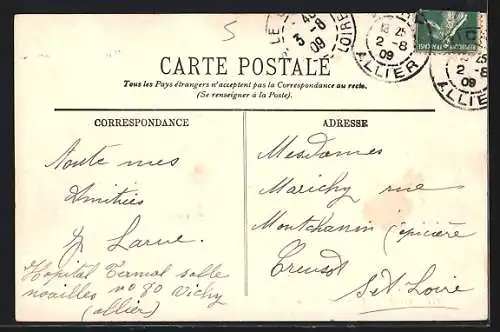 5
LE
3 -8
09
LOIRE
13 25
2 -8
09
ALLIER
25
2 -8
09
ALLIER
CARTE POSTALE
Tous les Pays étrangers n'acceptent pas la Correspondance au recto.
(Se renseigner à la Poste).
CORRESPONDANCE
Toute mes
Amitiés
Larue.
Hopital Termal salle
noailles no 80 Vichy
(allier)
ADRESSE
Mesdames
Marichy rue
Montchanin (épicière
Creusot
S et Loire